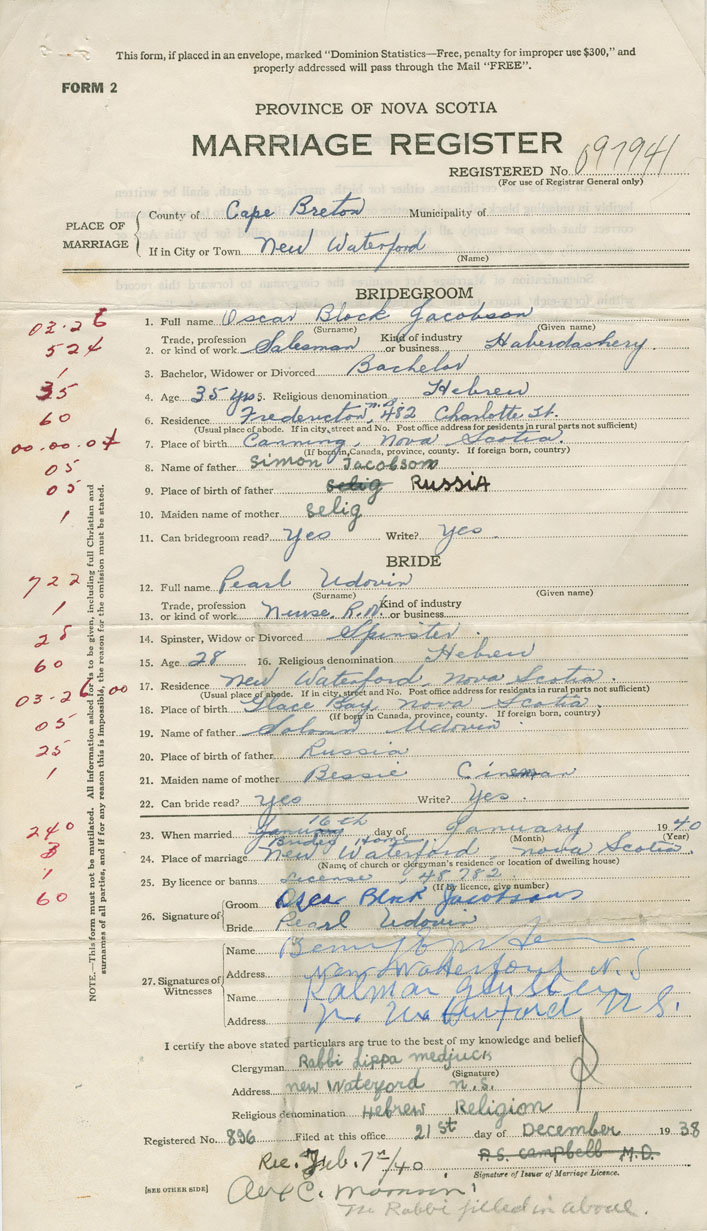 This form, if placed in an envelope, marked "Dominion Statistics—Free, penalty for improper use $300," and
properly addressed will pass through the Mail "FREE".
FORM 2
PROVINCE OF NOVA SCOTIA
MARRIAGE REGISTER
REGISTERED No. 097941
(For use of Registrar General only)
PLACE OF MARRIAGE
County of Cape Breton Municipality of
If in City or Town New Waterford
(Name)
BRIDEGROOM
03-26 1. Full name Oscar Block Jacobson
(Surname) (Given name)
524 2. Trade, profession or kind of work Salesman Kind of industry or business Haberdashery.
1 3. Bachelor, Widower or Divorced Bachelor
35 4. Age 35 yrs 5. Religious denomination Hebrew
60 6. Residence Fredericton, n.B. 482 Charlotte St.
(Usual place of abode. If in city, street and No. Post office address for residents in rural parts not sufficient)
00.00.07 7. Place of birth Canning, Nova Scotia.
(If born in Canada, province, county. If foreign born, country)
05 8. Name of father Simon Jacobson
05 9. Place of birth of father Selig RUSSIA
1 10. Maiden name of mother Selig
11. Can bridegroom read? Yes Write? Yes.
BRIDE
722 12. Full name Pearl Udovin
(Surname) (Given name)
1 13. Trade, profession or kind of work Nurse. R.N. Kind of industry or business
28 14. Spinster, Widow or Divorced Spinster.
60 15. Age 28 16. Religious denomination Hebrew
03-26.00 17. Residence New Waterford, Nova Scotia.
(Usual place of abode. If in city, street and No. Post office address for residents in rural parts not sufficient)
05 18. Place of birth Glace Bay, Nova Scotia.
(If born in Canada, province, county. If foreign born, country)
19. Name of father Udovin
25 20. Place of birth of father Russia
1 21. Maiden name of mother Bessie
22. Can bride read? Yes Write? Yes.
NOTE.—This form must not be mutilated. All information asked for is to be given, including full Christian and
surnames of all parties, and if for any reason this is impossible, the reason for the omission must be stated.
240 23. When married January 16th day of January 1940
(Month) (Year)
3 Brides Home
24. Place of marriage New Waterford, Nova Scotia.
(Name of church or clergyman's residence or location of dwelling house)
1 25. By licence or banns License, 48782.
(If by licence, give number)
60 26. Signature of
Groom Oscar Block Jacobson
Bride Pearl Udovin
27. Signatures of Witnesses
Name
Address New Waterford N.S
Name Kalman
Address N. Waterford N.S.
I certify the above stated particulars are true to the best of my knowledge and belief.
Clergyman Rabbi Lippa medjuck
(Signature)
Address new Waterford n.s.
Religious denomination Hebrew Religion
Registered No. 896 Filed at this office 21st day of December 1938
Rec. Feb. 7th/40 A.S. Campbell M.D.
Signature of Issuer of Marriage Licence.
[SEE OTHER SIDE] C.
The Rabbi filled in above.